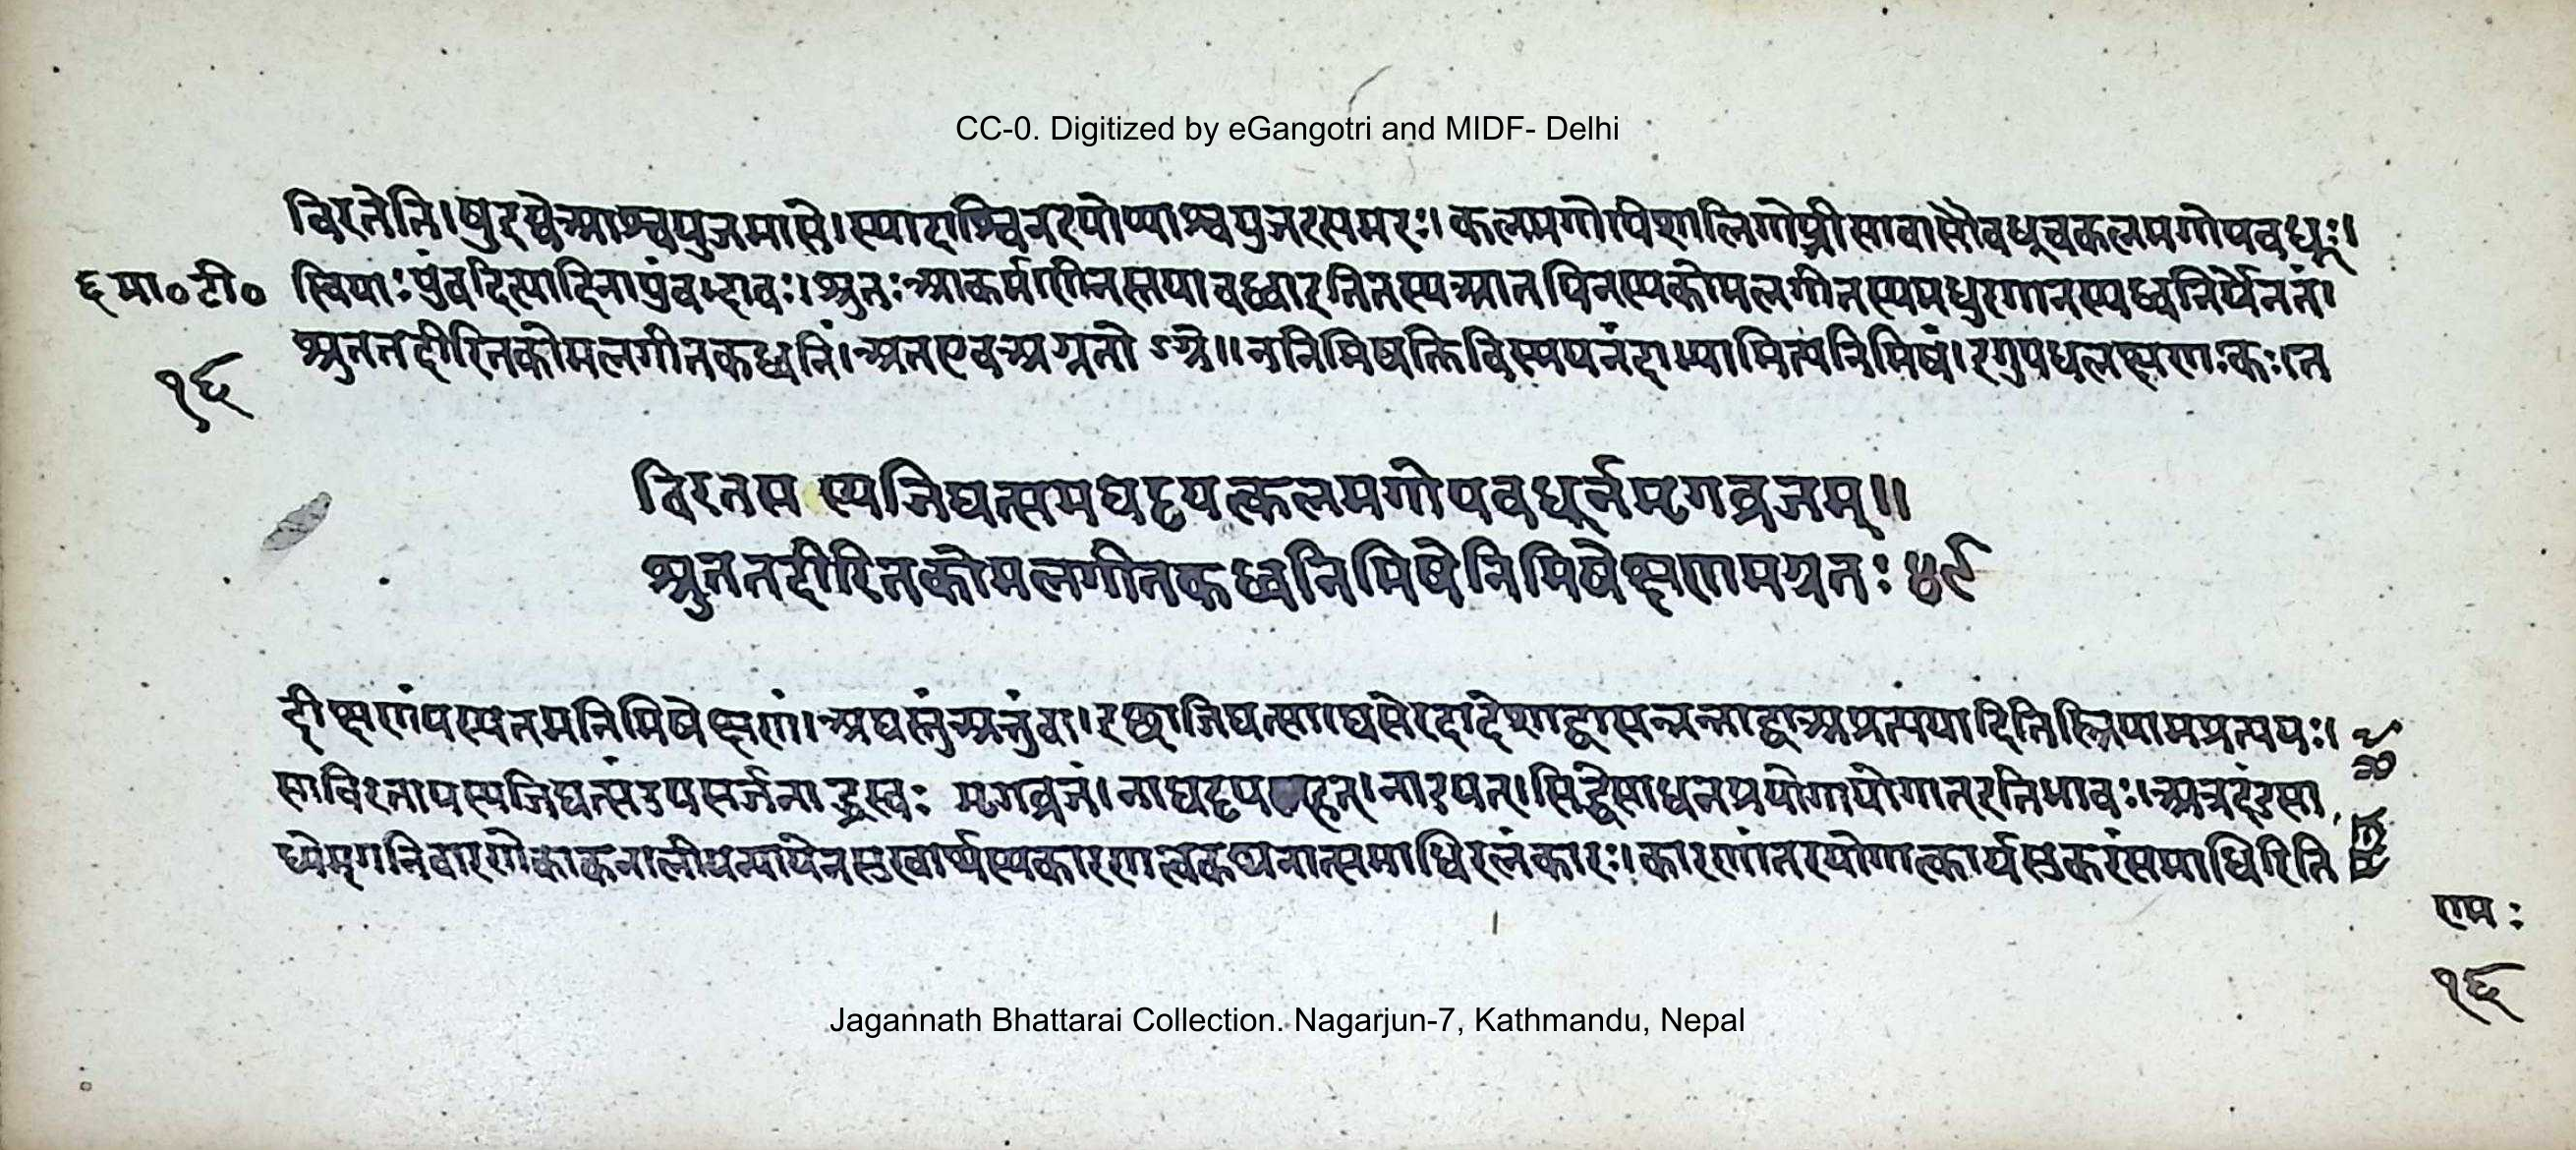 CC-0. Digitized by eGangotri and MIDF- Delhi
विरतेति।षुरस्वेआश्वयुजमासे।स्यादाश्विनइषोप्याश्वयुजइत्यमरः।कलमगोपीशालिगोप्त्रीसाचासौवधूचकलमगोपवधूः।
६मा०टी० स्त्रियाःपुंवदित्यादिनापुंवद्भावः।श्रुतःआकर्मणीतस्तयावध्वाईरितस्यआलपितस्यकोमलगीतस्यमधुरगानस्यध्वनिर्येनतं।
श्रुततदीरितकोमलगीतकध्वनिं।अतएवअग्रतोऽग्रे॥ननिमिषतिविस्मयनंदाभ्यामित्यनिमिषं।इगुपधलक्षणःकः।त
१६
विरतसस्यजिघत्समघट्टयत्कलमगोपवधूर्नमृगव्रजम्॥
श्रुततदीरितकोमलगीतकध्वनिमिषेनिमिषेक्षणमग्रतः ४९
दीक्षणंयस्यतमनिमिषेक्षणं।अघस्तुंअत्तुंवा।इच्छाजिघत्सा।घसेरदादेशाद्वासन्नन्ताद्वाअप्रत्ययादितिस्त्रियामप्रत्ययः।
साविरतायस्यजिघत्संउपसर्जनाद्ध्रस्वः मृगव्रजं।नाघट्टयत्।नारयत्।सिद्धेसाधनप्रयोगायोगात्इतिभावः।अत्रदंडसा
ध्येमृगनिवारणेकाकतालीयन्यायेनसुखार्थस्यकारणत्वकथनात्समाधिरलंकारः।कारणांतरयोगात्कार्यसुकरंसमाधिरिति
एम :
१६
Jagannath Bhattarai Collection. Nagarjun-7, Kathmandu, Nepal